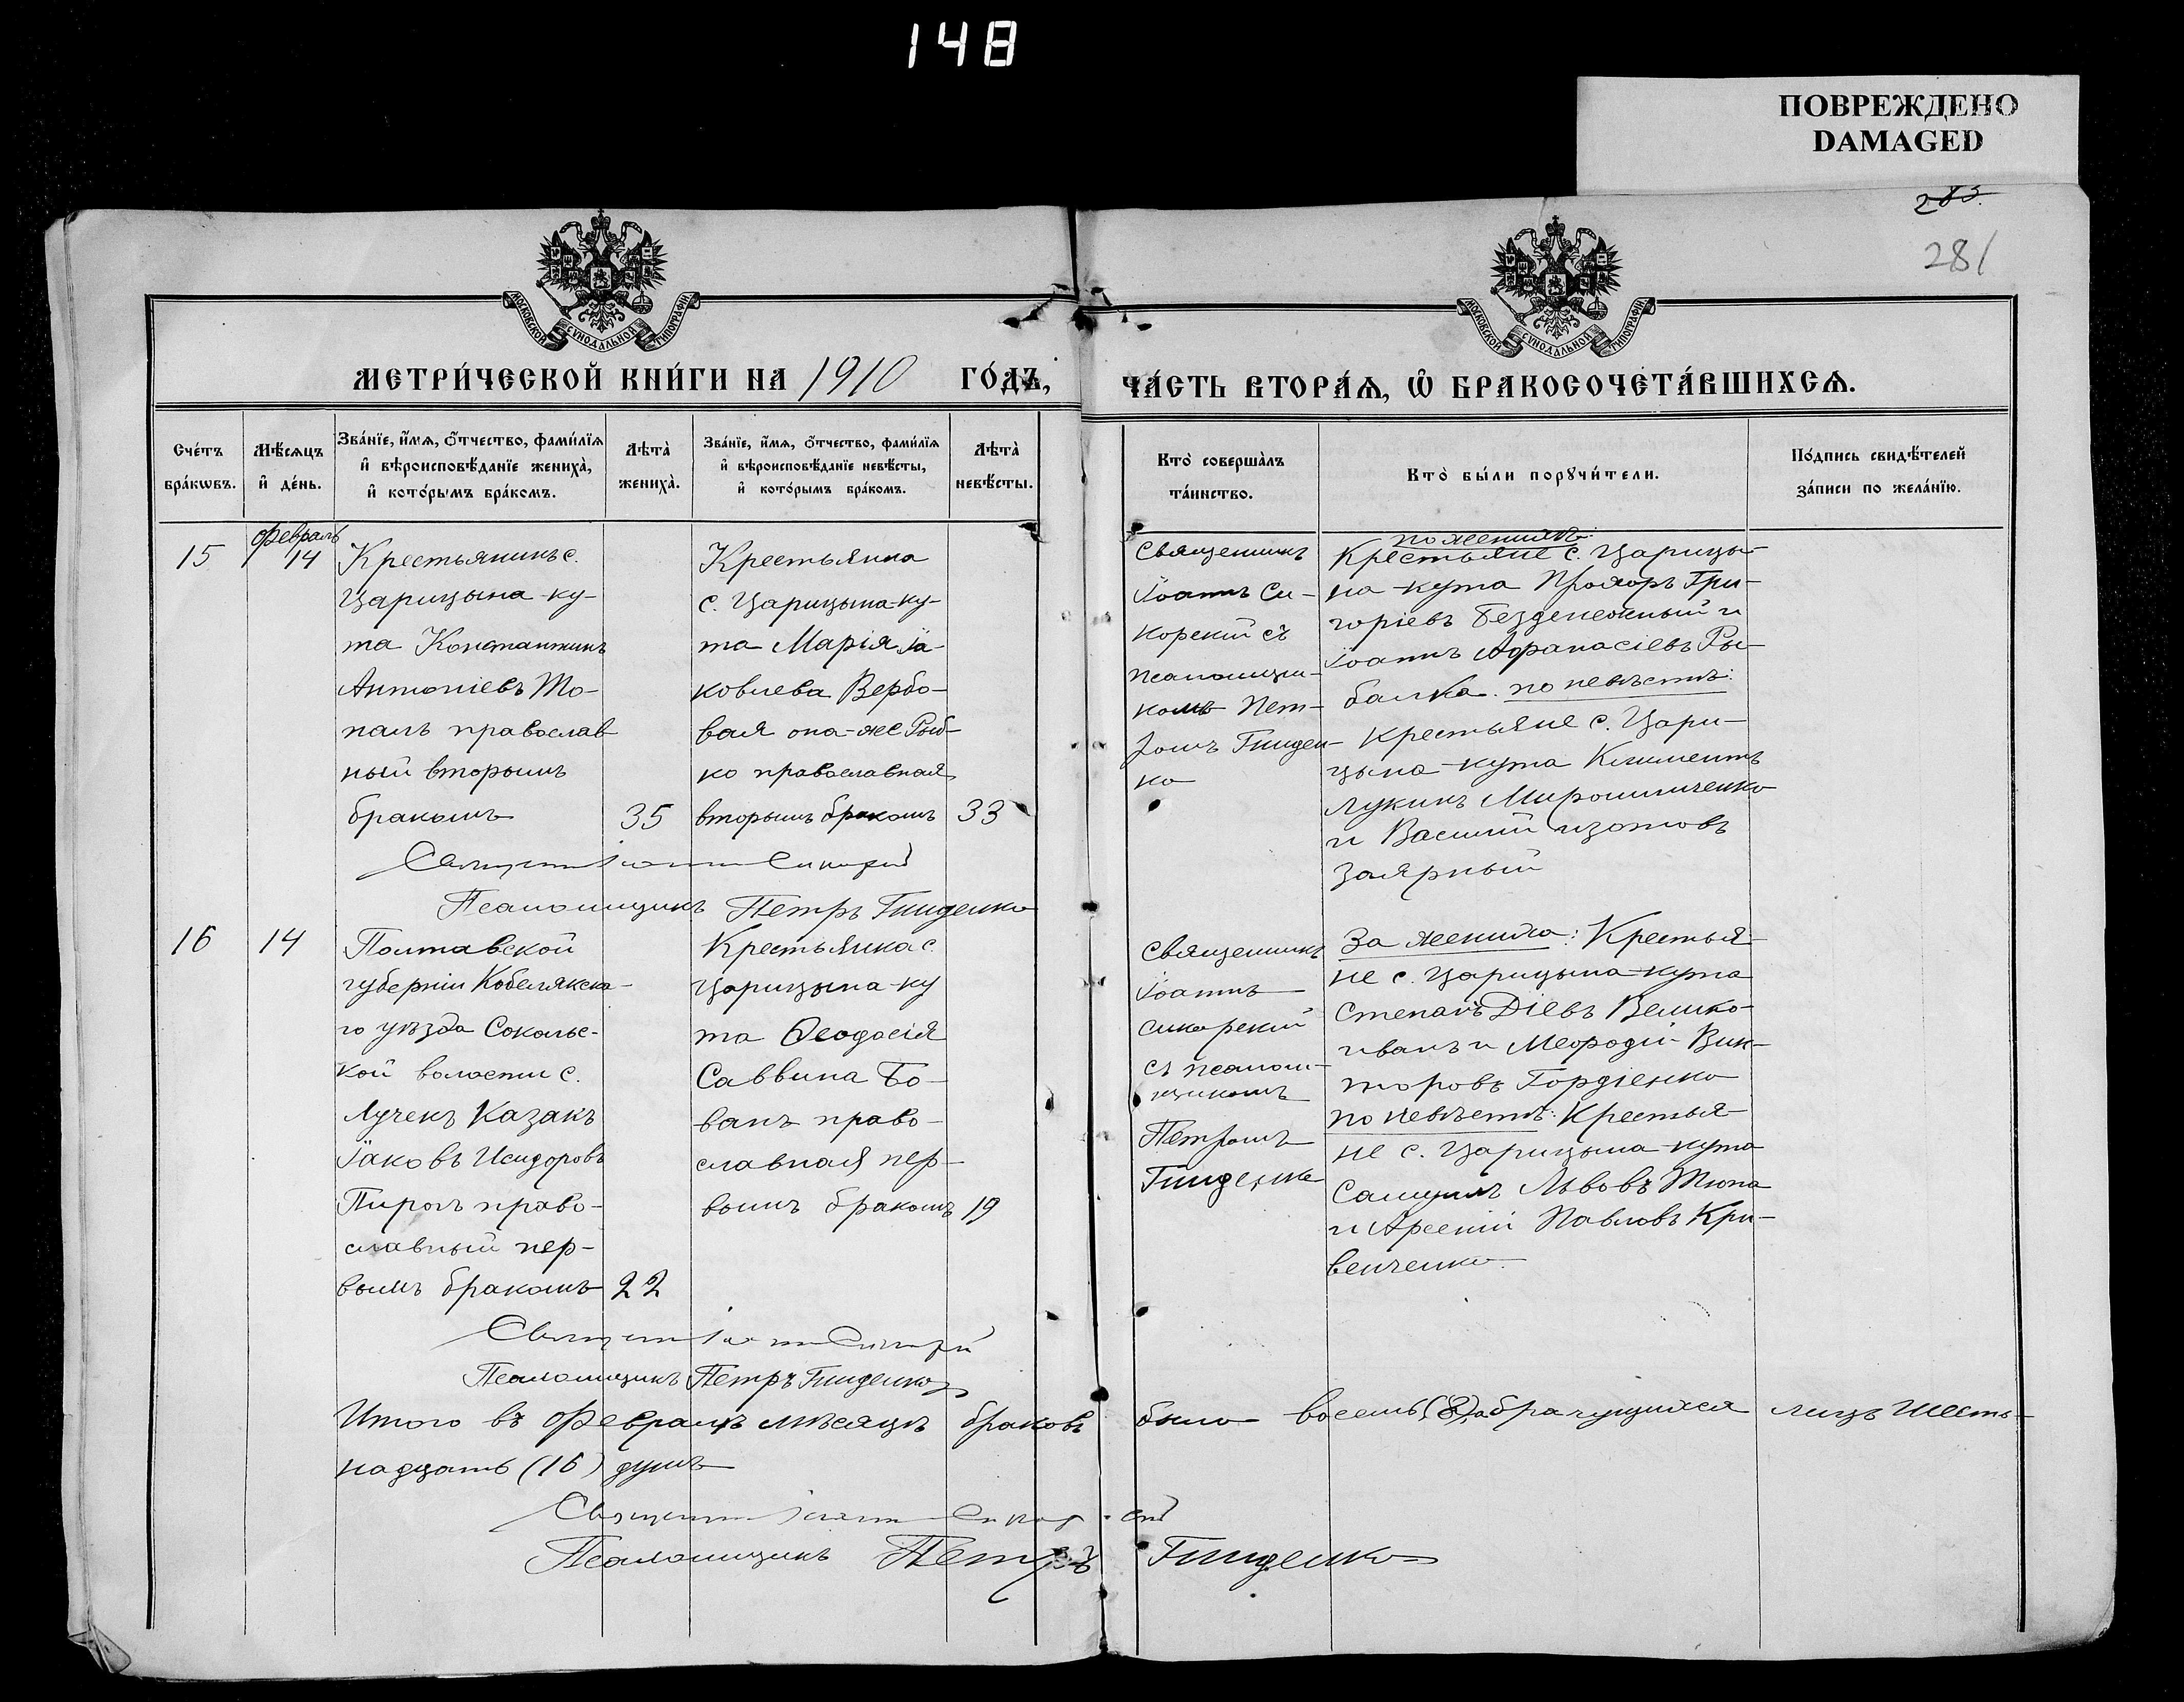 148
ПОВРЕЖДЕНО
DAMAGED
283.
281
МОСКОВСКОЙ СУНОДАЛЬНОЙ ТИПОГРАФІИ
МОСКОВСКОЙ СУНОДАЛЬНОЙ ТИПОГРАФІИ
МЕТРИ́ЧЕСКОЙ КНИ́ГИ НА 1910 ГО́ДЪ,
ЧА́СТЬ ВТОРА́Ѧ, Ѽ БРАКОСОЧЕТА́ВШИХСѦ.
Сче́тъ бра́кѡвъ.
Мѣ́сѧцъ и҆ де́нь.
Зва́нїе, и҆́мѧ, ѻ҆́тчество, фами́лїѧ и҆ вѣроисповѣ́данїе жениха̀, и҆ кото́рымъ бра́комъ.
Лѣта̀ жениха̀.
Зва́нїе, и҆́мѧ, ѻ҆́тчество, фами́лїѧ и҆ вѣроисповѣ́данїе невѣ́сты, и҆ кото́рымъ бра́комъ.
Лѣта̀ невѣ́сты.
Кто̀ соверша́лъ та́инство.
Кто̀ бы́ли порꙋчи́тели.
По́дпись свидѣ́телей за́писи по жела́нїю.
15
Февраль
14
Крестьянинъ с.
Царицына-ку-
та Константинъ
Антоніевъ То-
палъ православ
ный вторымъ
бракомъ
35
Крестьянка
с. Царицына-ку-
та Марія Іа-
ковлева Вербо-
вая она-же Рыб-
ко православная
вторымъ бракомъ
33
Священникъ
Іоаннъ Си-
корскій съ
псаломщи-
комъ Пет-
ромъ Гниден-
ко
по женихѣ:
Крестьяне с. Царицы-
на-кута Прохоръ Гри-
горіевъ Безденежный и
Іоаннъ Афанасіевъ Ры-
балка. по невѣстѣ:
Крестьяне с. Цари-
цына-кута Климентъ
Лукинъ Мирошниченко
и Василій Изотовъ
Заярный
Священникъ Іоаннъ Сикорскій
Псаломщикъ Петръ Гниденко
16
14
Полтавской
губерніи Кобелякска-
го уѣзда Сокольс-
кой волости с.
Лучекъ Казакъ
Іаковъ Исидоровъ
Пирогъ право-
славный пер-
вымъ бракомъ
22
Крестьянка с.
Царицына-ку
та Ѳеодосія
Саввина Бо-
ванъ право-
славная пер-
вымъ бракомъ
19
Священникъ
Іоаннъ
Сикорскій
съ псалом-
щикомъ
Петромъ
Гниденко
За жениха: Крестья-
не с. Царицына-кута
Степанъ Діевъ Велико-
иванъ и Меѳодій Вик-
торовъ Гордіенко
по невѣстѣ: Крестья-
не с. Царицына-кута
Самуилъ Львовъ Тюпа
и Арсеній Павловъ Кри-
венченко.
Священникъ Іоаннъ Сикорскій
Псаломщикъ Петръ Гниденко
Итого въ Февралѣ мѣсяцѣ браковъ было восемь (8), а брачущихся лицъ шест-
надцать (16) душъ
Священникъ Іоаннъ Сикорскій
Псаломщикъ Петръ Гниденко